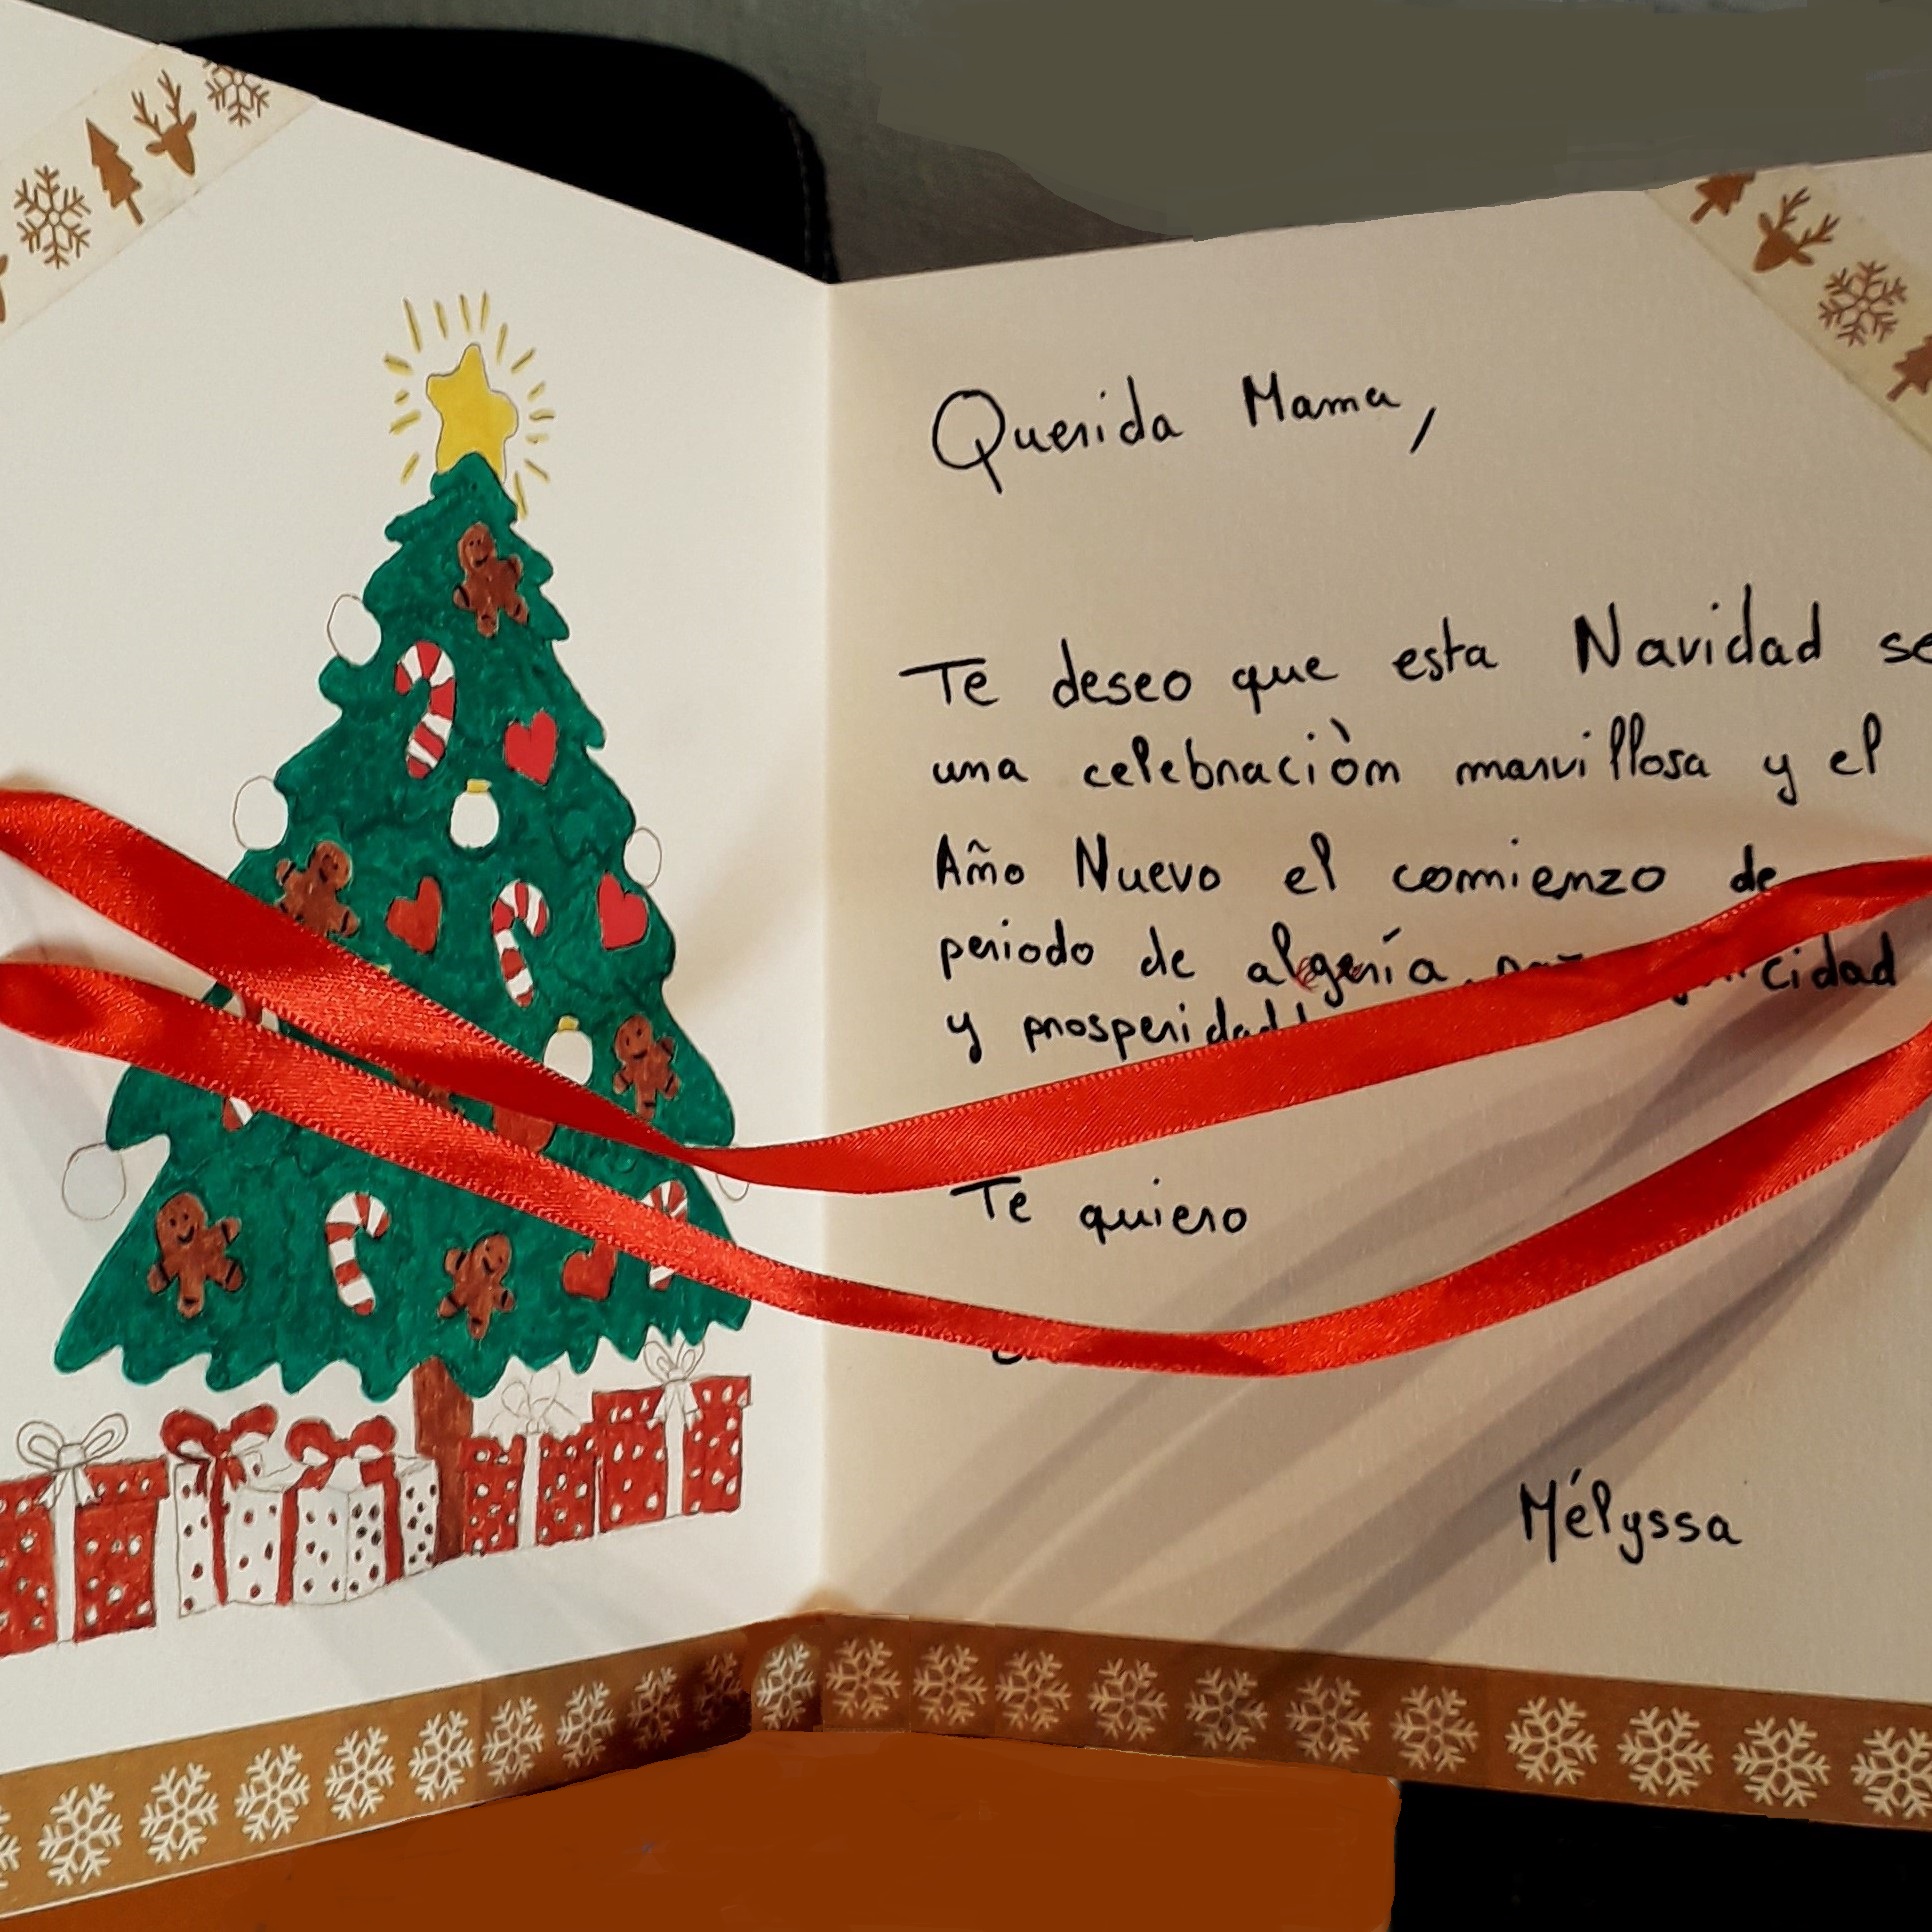 Querida Mama,
Te deseo que esta Navidad se
una celebraciòn marvillosa y el
Año Nuevo el comienzo de
periodo de algería,
y prosperidad!
Te quiero
Mélyssa